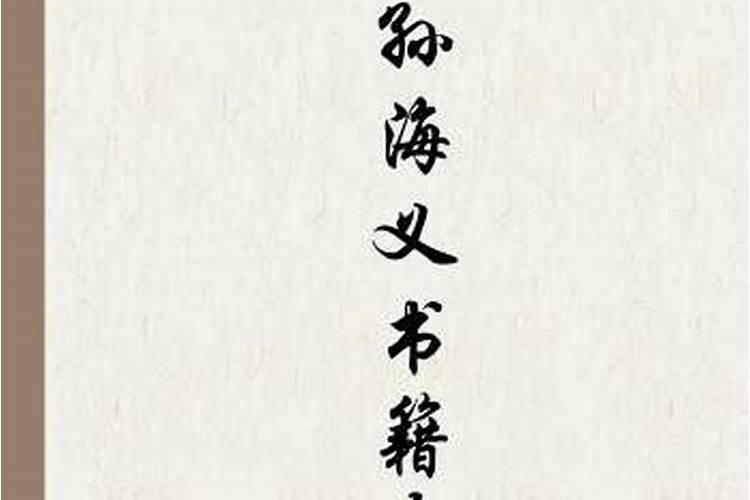 孙海义书籍